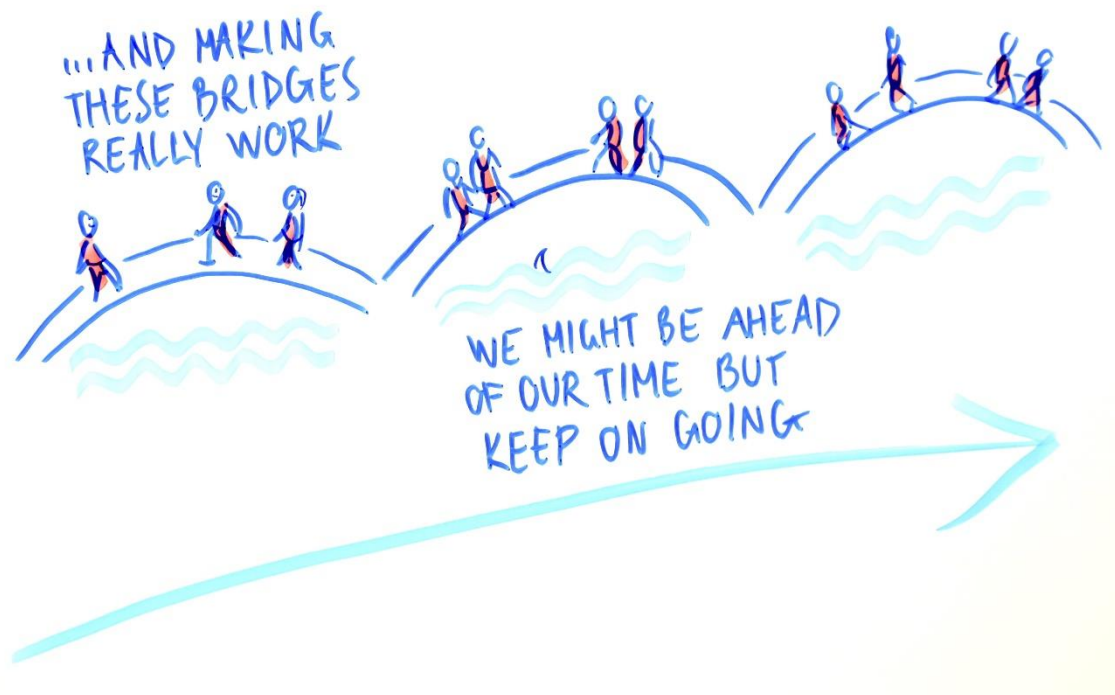 ...AND MAKING
THESE BRIDGES
REALLY WORK
WE MIGHT BE AHEAD
OF OUR TIME BUT
KEEP ON GOING